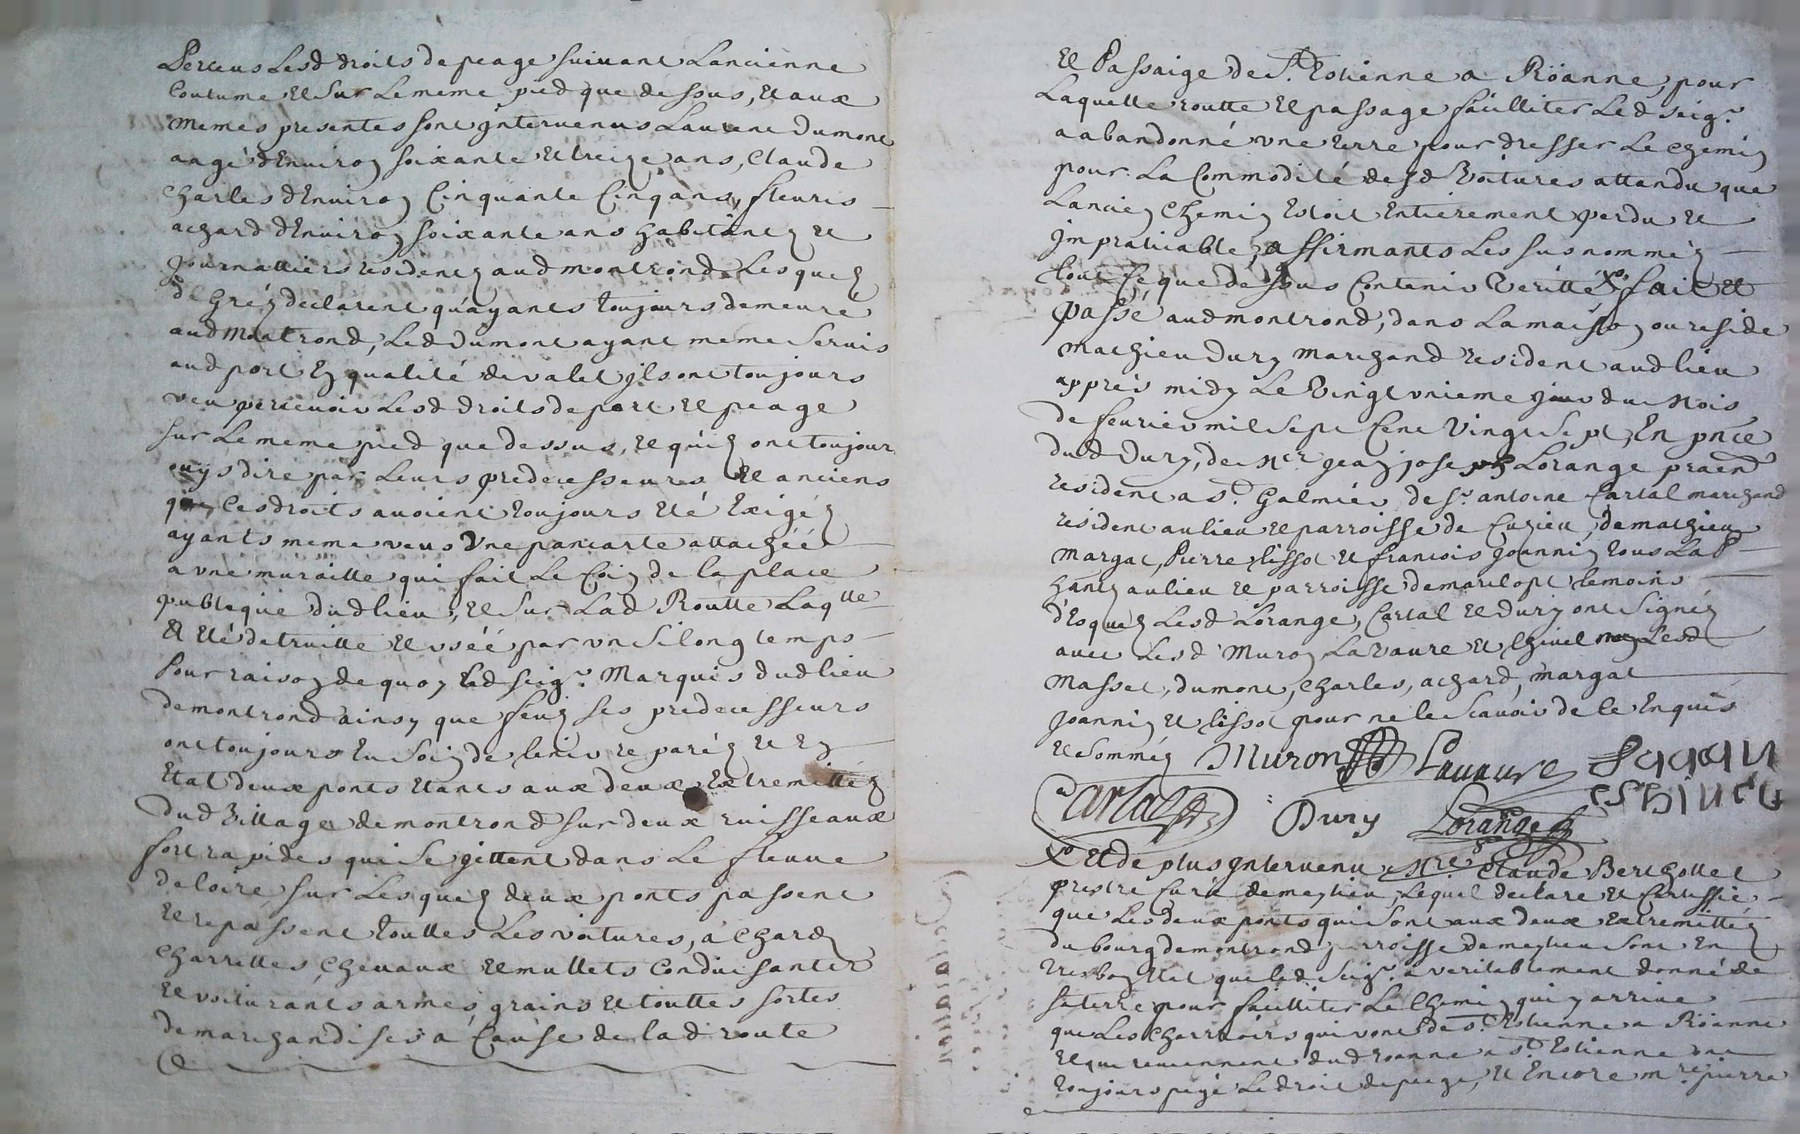 Perceus Lesd droits de peage suivant Lancienne
Coutume et sur Le meme pied que dessous, et aux
memes presentes sont jntervenus Laurent Dumont
aagé d'Environ soixante et treize ans, Claude
Charles d'Environ Cinquante Cinq ans, fleuris
achard d'Environ soixante ans habitants et
journalliers residents aud montrond Lesquels
de Gréz declarent qu'ayants toujours demeuré
aud Montrond, Led Dumont ayant meme servis
aud port En qualité de valet jls ont toujours
veu percevoir Lesd droits de port et peage
sur Le meme pied que dessus, et qu'ils ont toujour
ouys dire par Leurs predecesseures et anciens
que Ces droits avoient toujours Eté Exigéz
ayants meme veus Une pancarte attachéé
a une muraille qui fait Le Coin de la place
publique dud lieu, et sur Lad Routte Laqlle
a Eté detruitte et uséé par un si long temps
Pour raison de quoy Led seigr. Marquis dud lieu
de montrond ainsy que feuz ses predecesseurs
ont toujours Eu soin de tenir reparéz et En
Etat deux ponts Etants aux deux Extremittéz
dud Village de montrond sur deux ruisseaux
fort rapides qui se jettent dans Le fleuve
de loire sur Lesquels deux ponts passent
et repassent touttes Les voitures, a Chards
Charrettes, Chevaux et mullets Conduisants
et voiturants armes, grains et touttes sortes
de marchandises a Cause de lad route
et Passaige de St. Estienne a Röanne, pour
Laquelle routte et passage facilliter Led seigr.
a abandonné une terre pour dresser Le Chemin
pour La Commodité desd Voitures attandu que
Lancien Chemin Estoit Entierement perdu et
jmpraticable, affirmants Les susnomméz
tout Ce que dessus Contenir Veritté fait et
passé aud montrond, dans La maison ou reside
mathieu Dury marchand resident aud lieu
apprès midy Le Vingt unieme jour du Mois
de fevrier mil sept Cent Vingt sept, En pnce
dud Dury, de Mre jean joseph Lorange praend
resident a St. Galmier de Sr. antoine Cartal marchand
resident au lieu et parroisse de Cuzieu, de mathieu
margat, Pierre lissot et francois joannin tous
au lieu et parroisse de temoins
d'Esquels Lesd Lorange, Cartal et Dury ont signéz
avec Lesd Muron Lavaure et non Lesd
Masset, dumont, Charles, achard, margat
joannin et lissot pour ne le scavoir de le Enquis
et Sommés Muron Lavaure
Cartal Dury Lorange
Et de plus jntervenu Mre Claude Berthollet
prestre Curé de meylieu, Lequel declare et Certiffie
que Les deux ponts qui sont aux deux Extremittéz
du bourg de montrond parroisse de meylieu sont En
tres bon Etat que led. Seigr a veritablement donné de
sa terre pour facilliter Le Chemin qui y arrive
que Les Charroirs qui vont de St. Estienne a Röanne
et qui reviennent dud roanne a St Estienne ont
toujours payé Le droit de peage, et Encore mre. pierre